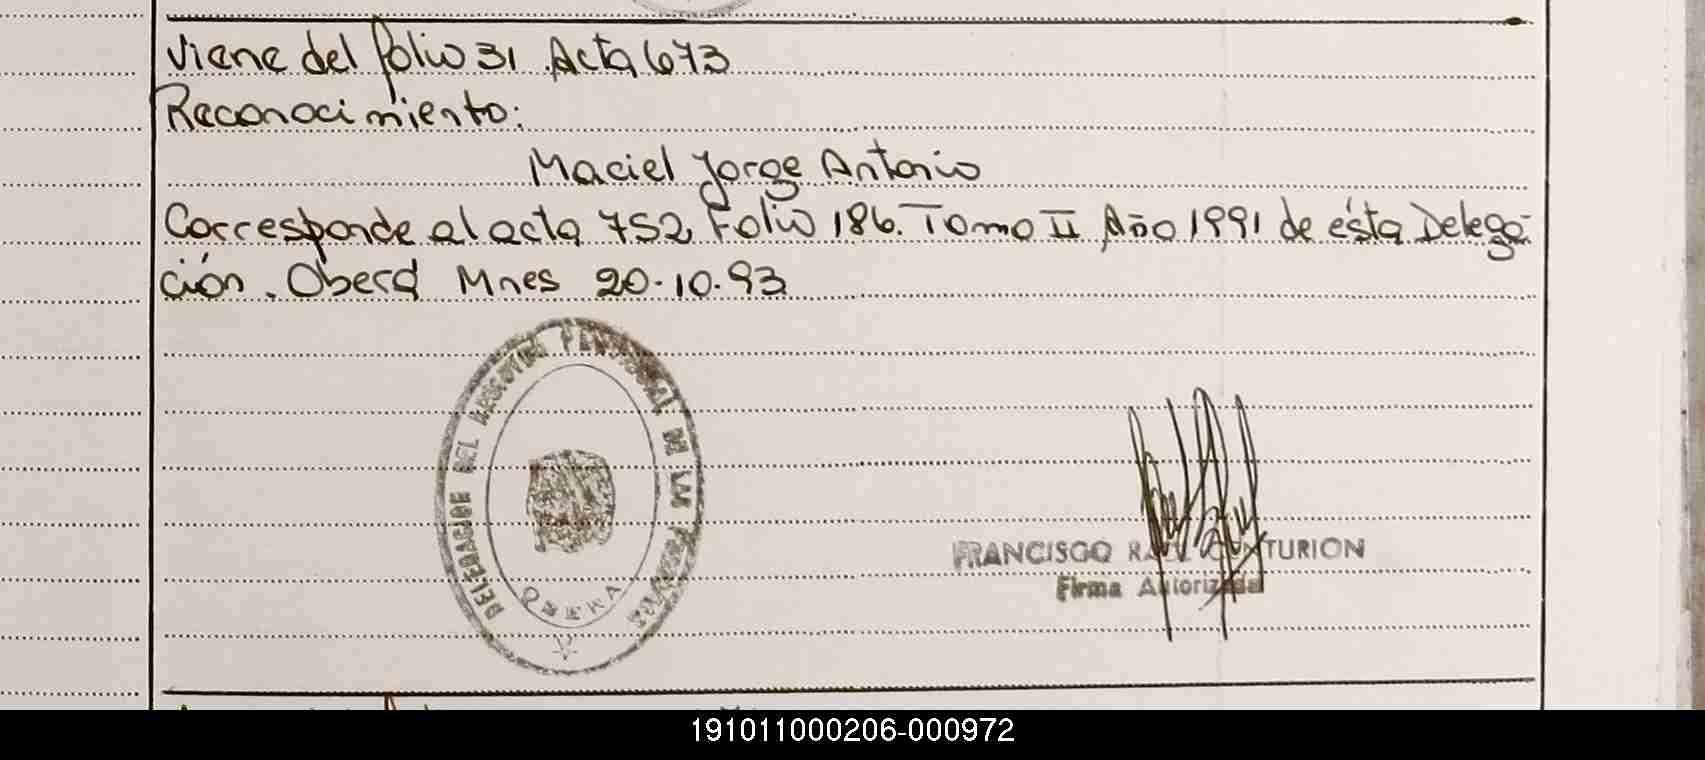 Viene del folio 31 Acta 673
Reconocimiento:
Maciel Jorge Antonio
Corresponde al acta 752 Folio 186. Tomo II Año 1991 de ésta Delega-
ción. Oberá Mnes 20.10.93
DELEGACION DEL REGISTRO PROVINCIAL DE LAS PERSONAS
OBERA
FRANCISCO RAUL CENTURION
Firma Autorizada
191011000206-000972